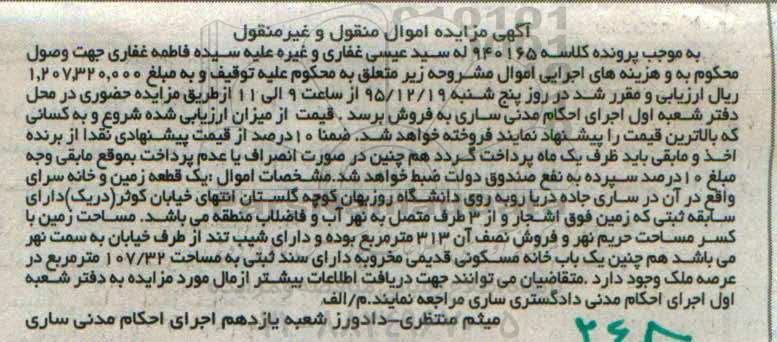 آگهی مزایده اموال منقول و غیرمنقول
به موجب پرونده کلاسه ۹۴۰۱۶۵ له سید عیسی غفاری و غیره علیه سیده فاطمه غفاری جهت وصول
محکوم به و هزینه های اجرایی اموال مشروحه زیر متعلق به محکوم علیه توقیف و به مبلغ ۱,۲۰۷,۳۲۰,۰۰۰
ریال ارزیابی و مقرر شد در روز پنج شنبه ۹۵/۱۲/۱۹ از ساعت ۹ الی ۱۱ ازطریق مزایده حضوری در محل
دفتر شعبه اول اجرای احکام مدنی ساری به فروش برسد . قیمت از میزان ارزیابی شده شروع و به کسانی
که بالاترین قیمت را پیشنهاد نمایند فروخته خواهد شد. ضمنا ۱۰درصد از قیمت پیشنهادی نقدا از برنده
اخذ و مابقی باید ظرف یک ماه پرداخت گردد هم چنین در صورت انصراف یا عدم پرداخت بموقع مابقی وجه
مبلغ ۱۰درصد سپرده به نفع صندوق دولت ضبط خواهد شد.مشخصات اموال :یک قطعه زمین و خانه سرای
واقع در آن در ساری جاده دریا روبه روی دانشگاه روزبهان کوچه گلستان انتهای خیابان کوثر(دریک)دارای
سابقه ثبتی که زمین فوق اشجار و از ۳ طرف متصل به نهر آب و فاضلاب منطقه می باشد. مساحت زمین با
کسر مساحت حریم نهر و فروش نصف آن ۳۱۳ مترمربع بوده و دارای شیب تند از طرف خیابان به سمت نهر
می باشد هم چنین یک باب خانه مسکونی قدیمی مخروبه دارای سند ثبتی به مساحت ۱۰۷/۳۲ مترمربع در
عرصه ملک وجود دارد .متقاضیان می توانند جهت دریافت اطلاعات بیشتر ازمال مورد مزایده به دفتر شعبه
اول اجرای احکام مدنی دادگستری ساری مراجعه نمایند.م/الف
میثم منتظری-دادورز شعبه یازدهم اجرای احکام مدنی ساری